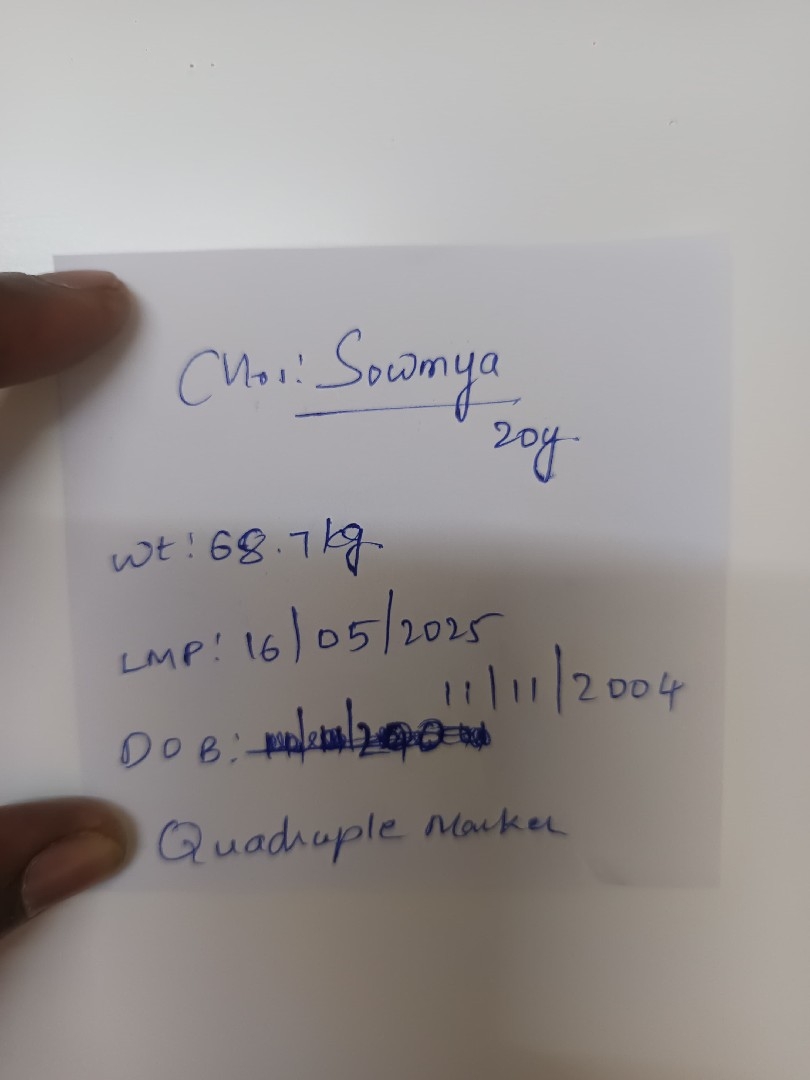 Sowmya
20y
Wt: 68.7 kg
LMP: 16/05/2025
11/11/2004
DOB:
Quadruple Marker